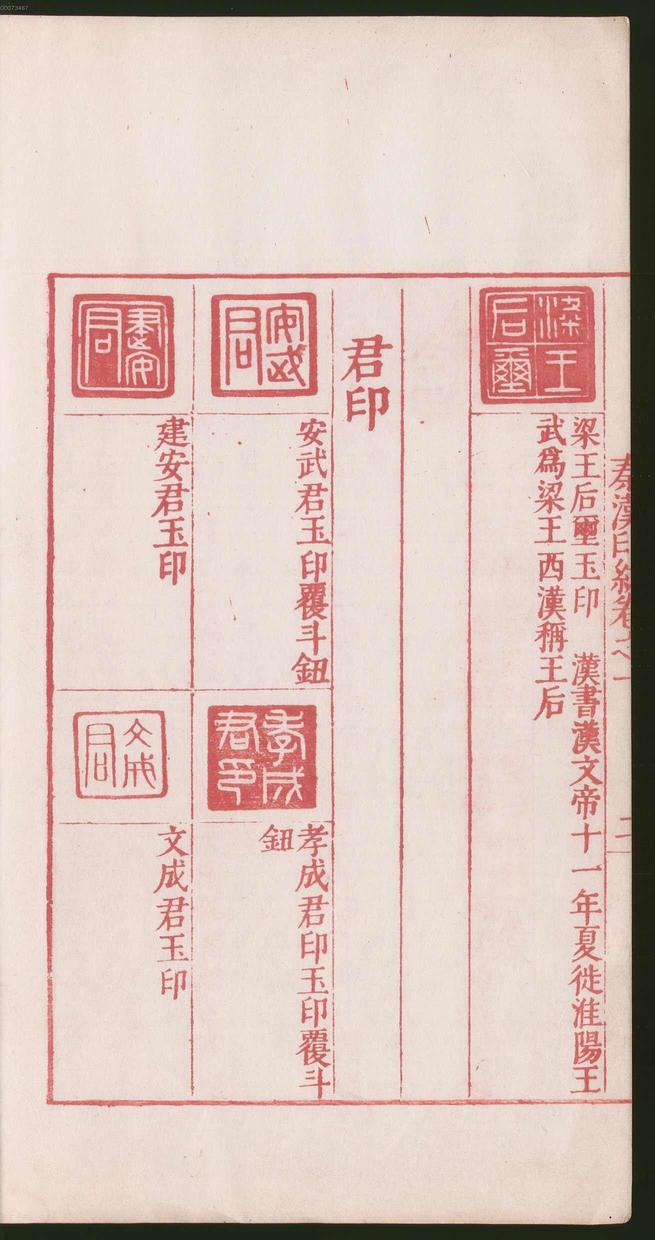 00073467
秦漢印統卷之一
二
梁王后璽
梁王后璽玉印　漢書漢文帝十一年夏徙淮陽王
武爲梁王西漢稱王后
君印
安武君
安武君玉印覆斗鈕
孝成君印
孝成君印玉印覆斗
鈕
建安君
建安君玉印
文成君
文成君玉印